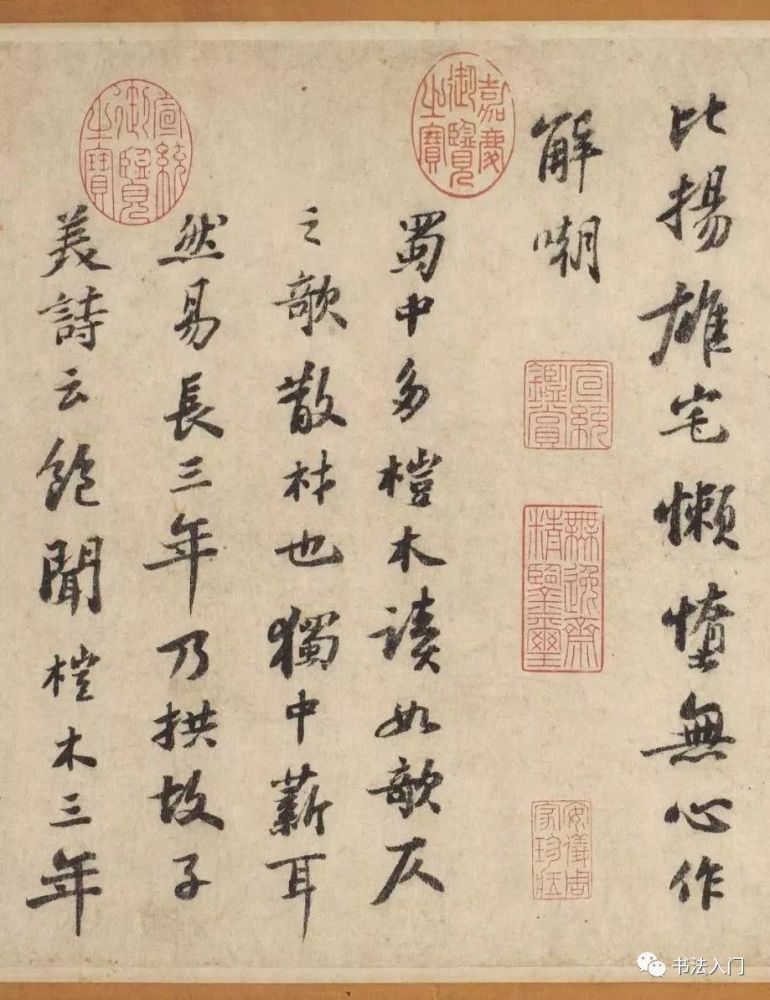 比揚雄宅懶惰無心作
解嘲
嘉慶
御覽
之寶
宣統
鑑賞
無逸齋
精鑒璽
安儀周
家珍藏
蜀中多榿木讀如欹仄
之欹散材也獨中薪耳
然易長三年乃拱故子
美詩云飽聞榿木三年
宣統
御覽
之寶
书法入门